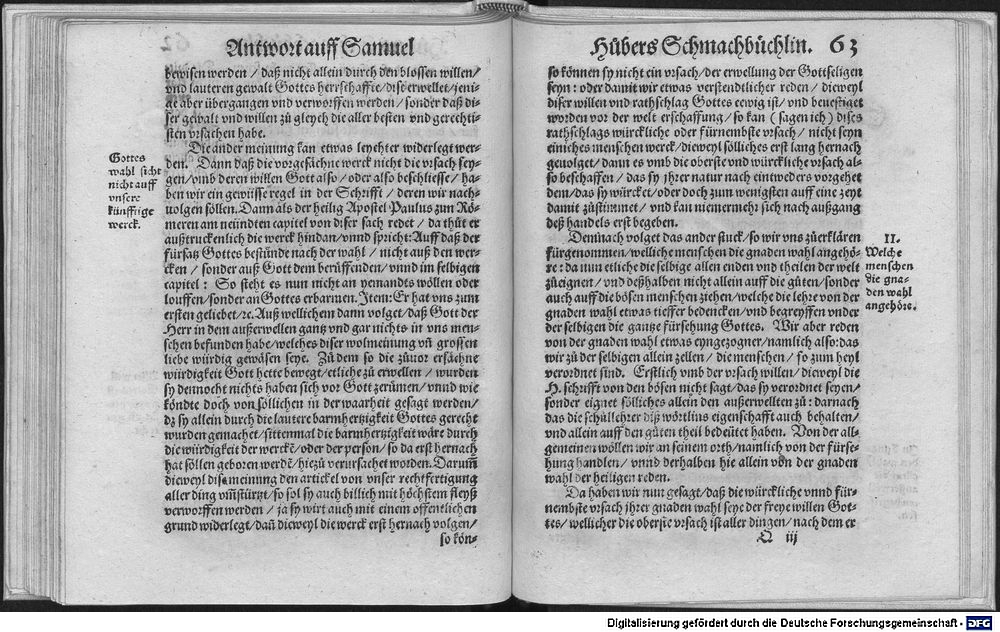 Antwort auff Samuel
bewisen werden / daß nicht allein durch den blossen willen /
vnd lauteren gewalt Gottes herrschafft / dise erwellet / jeni-
ge aber übergangen vnd verworffen werden / sonder daß di-
ser gewalt vnd willen zů gleych die aller besten vnd gerechti-
sten vrsachen habe.
Die ander meinung kan etwas leychter widerlegt wer-
den. Dann daß die vorgesächne werck nicht die vrsach sey-
gen / vmb deren willen Gott also / oder also beschliesse / ha-
ben wir ein gewüsse regel in der Schrifft / deren wir nach-
uolgen söllen. Dann als der heilig Apostel Paulus zun Rö-
meren am neündten capitel von diser sach redet / da thůt er
außtruckenlich die werck hindan / vnnd spricht: Auff daß der
fürsatz Gottes bestünde nach der wahl / nicht auß den wer-
cken / sonder auß Gott dem berüffenden / vnnd im selbigen
capitel: So steht es nun nicht an yemandts wöllen oder
louffen / sonder an Gottes erbarmen. Item: Er hat vns zum
ersten geliebet / ꝛc. Auß wellichem dann volget / daß Gott der
Herr in dem außerwellen gantz vnd gar nichts in vns men-
schen befunden habe / welches diser wolmeinung vn̄ grossen
liebe würdig gewäsen seye. Zů dem so die zůuor ersächne
würdigkeit Gott hette bewegt / etliche zů erwellen / wurden
sy dennocht nichts haben sich vor Gott zerümen / vnnd wie
köndte doch von söllichen in der waarheit gesagt werden /
dz sy allein durch die lautere barmhertzigkeit Gottes gerecht
wurden gemachet / sittenmal die barmhertzigkeit wäre durch
die würdigkeit der wercke͂ / oder der person / so da erst hernach
hat söllen geboren werde͂ / hiezů verursachet worden. Darum̄
dieweyl dise meinung den artickel von vnser rechtfertigung
aller ding vm̄stürtzt / so sol sy auch billich mit höchstem fleyß
verworffen werden / ja sy wirt auch mit einem offentlichen
grund widerlegt / dan̄ dieweyl die werck erst hernach volgen /
so kön-
Gottes
wahl sicht
nicht auff
vnsere
künfftige
werck.
Hůbers Schmachbüchlin. 63
so können sy nicht ein vrsach / der erwellung der Gottseligen
seyn: oder damit wir etwas verstendtlicher reden / dieweyl
diser willen vnd rathschlag Gottes eewig ist / vnd beuestiget
worden vor der welt erschaffung / so kan (sagen ich) dises
rathschlags würckliche oder fürnembste vrsach / nicht seyn
einiches menschen werck / dieweyl sölliches erst lang hernach
geuolget / dann es vmb die oberste vnd würckliche vrsach al-
so beschaffen / das sy jhrer natur nach eintweders vorgehet
dem / das sy würcket / oder doch zum wenigsten auff eine zeyt
damit zůstimmet / vnd kan niemermehr sich nach außgang
deß handels erst begeben.
Demnach volget das ander stuck / so wir vns zůerklären
fürgenommen / welliche menschen die gnaden wahl angehö-
re: da nun etliche die selbige allein enden vnd theilen der welt
zůeignen / vnd deßhalben nicht allein auff die gůten / sonder
auch auff die bösen menschen ziehen / welche die lehre von der
gnaden wahl etwas tieffer bedencken / vnd begreyffen vnder
der selbigen die gantze fürsehung Gottes. Wir aber reden
von der gnaden wahl etwas eyngezogner / namlich also: das
wir zů der selbigen allein zellen / die menschen / so zum heyl
verordnet sind. Erstlich vmb der vrsach willen / dieweyl die
H. schrifft von den bösen nicht sagt / das sy verordnet seyen /
sonder eignet sölliches allein den außerwellten zů: darnach
das die schůllehrer diß wörtlins eigenschafft auch behalten /
vnd allein auff den gůten theil bedeütet haben. Von der all-
gemeinen wöllen wir an seinem orth / namlich von der fürse-
hung handlen / vnnd derhalben hie allein von der gnaden
wahl der heiligen reden.
Da haben wir nun gesagt / daß die würckliche vnnd für-
nembste vrsach jhrer gnaden wahl seye der freye willen Got-
tes / wellicher die oberste vrsach ist aller dingen / nach dem er
Q iij
II.
Welche
menschen
die gna-
den wahl
angehöre.
Digitalisierung gefördert durch die Deutsche Forschungsgemeinschaft - DFG